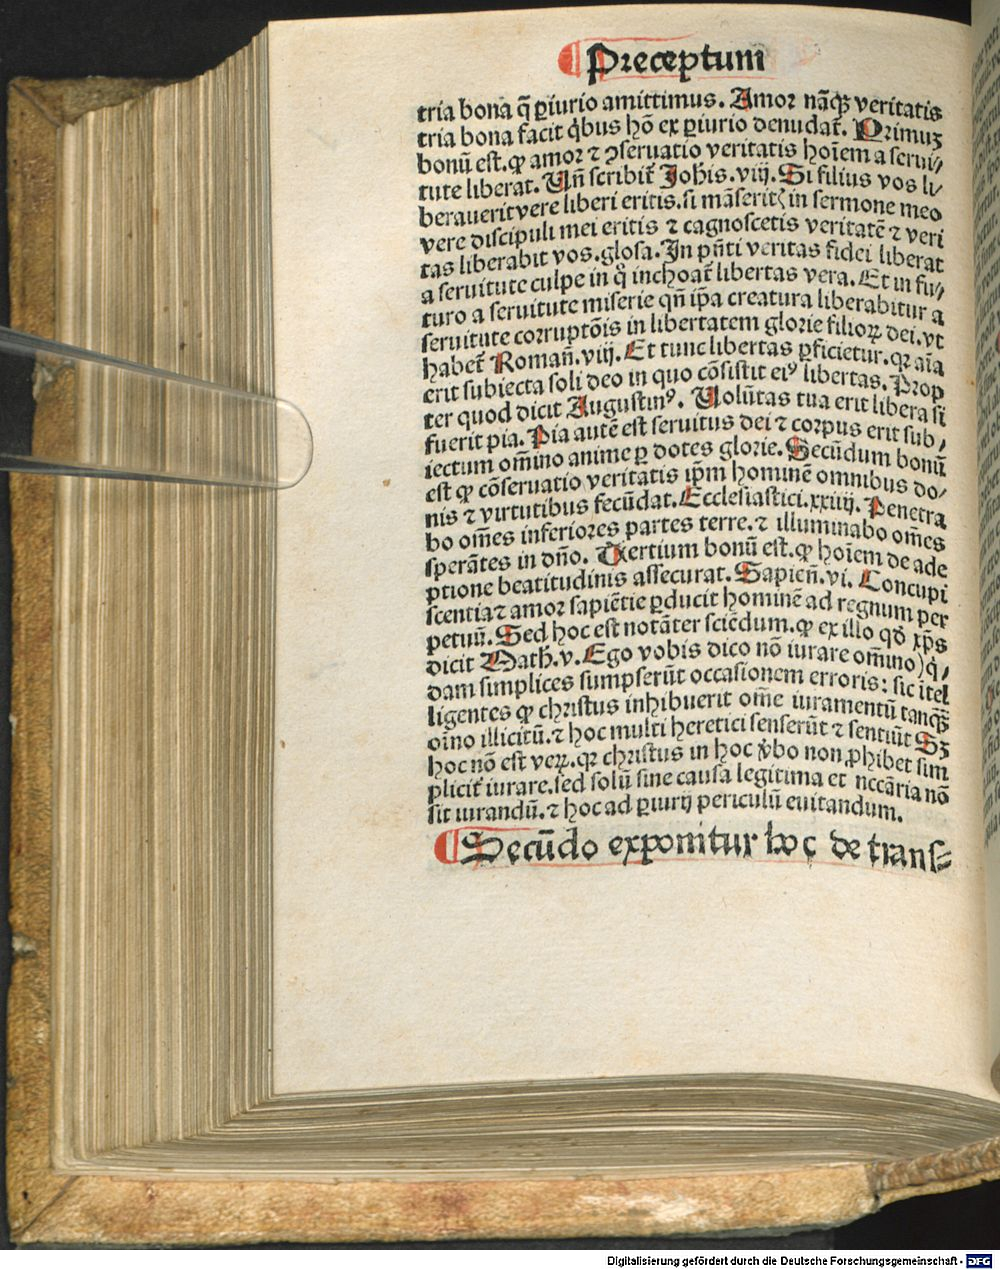 ¶ Preceptum
tria bona q̄ ꝑiurio amittimus. Amor nāqꝫ veritatis
tria bona facit q̇bus hō ex ꝑiurio denudat̄. Primuꝫ
bonū est. ꝙ amor ⁊ ꝯseruatio veritatis hoīem a serui/
tute liberat. Vn̄ scribit̄ Joh̄is.viij. Si filius vos li/
berauerit vere liberi eritis. si māserit in sermone meo
vere discipuli mei eritis ⁊ cagnoscetis veritatē ⁊ veri
tas liberabit vos. glosa. In pn̄ti veritas fidei liberat
a seruitute culpe in q̊ inchoat̄ libertas vera. Et in fu/
turo a seruitute miserie qn̄ ip̄a creatura liberabitur a
seruitute corruptōis in libertatem glorie filioꝝ dei. vt
habet̄ Roman̄.viij. Et tunc libertas ꝑficietur. qꝛ aīa
erit subiecta soli deo in quo cōsistit eiꝰ libertas. Prop
ter quod dicit Augustinꝰ. Volūtas tua erit libera si
fuerit pia. Pia autē est seruitus dei ⁊ corpus erit sub/
iectum om̄ino anime ꝑ dotes glorie. Secūdum bonū
est ꝙ cōseruatio veritatis ip̄m hominē omnibus do/
nis ⁊ virtutibus fecūdat. Ecclesiastici.xxiiij. Penetra
bo om̄es inferiores partes terre. ⁊ illuminabo om̄es
sperātes in dn̄o. Tertium bonū est. ꝙ hoīem de ade
ptione beatitudinis assecurat. Sapien̄.vi. Concupi
scentia ⁊ amor sapiētie ꝑducit hominē ad regnum per
petuū. Sed hoc est notāter sciēdum. ꝙ ex illo qd̓ xp̄s
dicit Math̄.v. Ego vobis dico nō iurare om̄ino) q̇/
dam simplices sumpserūt occasionem erroris: sic itel
ligentes ꝙ christus inhibuerit om̄e iuramentū tanqꝫ
oīno illicitū. ⁊ hoc multi heretici senserūt ⁊ sentiūt Sꝫ
hoc nō est veꝝ. qꝛ christus in hoc v̓bo non ꝓhibet sim
plicit̄ iurare. sed solū sine causa legitima et nccāria nō
sit iurandū. ⁊ hoc ad ꝑiurij periculū euitandum.
¶ Secūdo exponitur hoc de trans⸗
Digitalisierung gefördert durch die Deutsche Forschungsgemeinschaft - DFG